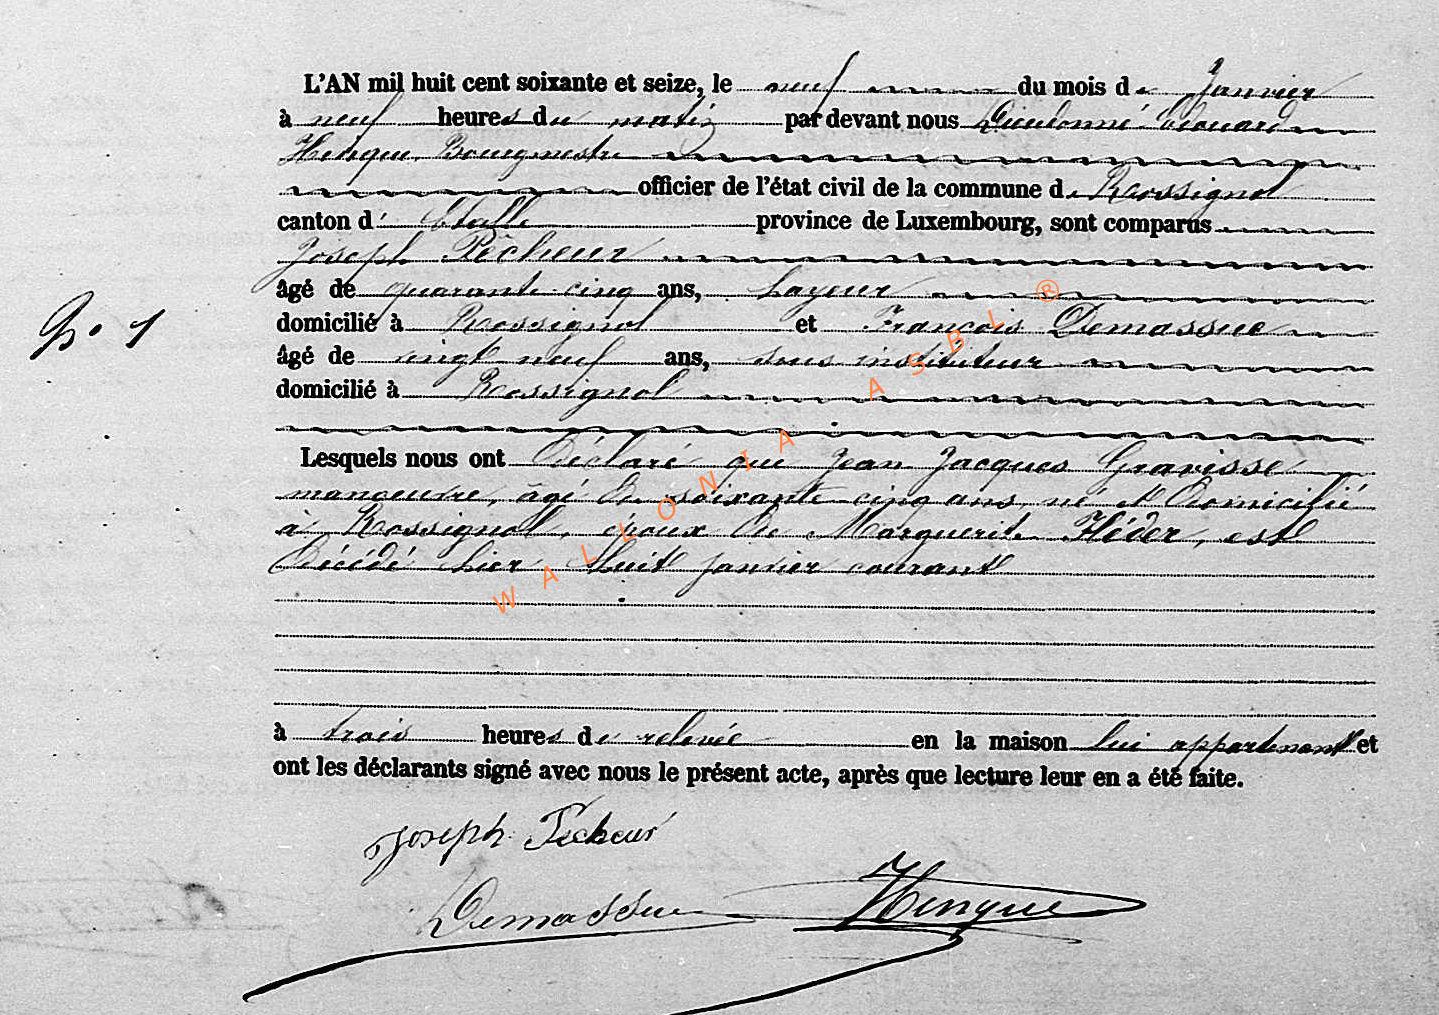 L'AN mil huit cent soixante et seize, le neuf du mois de Janvier
à neuf heures du matin par devant nous Dieudonné Edouard
Hinque, Bourgmestre
officier de l'état civil de la commune de Rossignol
canton d'Etalle province de Luxembourg, sont comparus
Joseph Pêcheur
âgé de quarante cinq ans,
domicilié à Rossignol et François Demassue
N° 1
âgé de vingt neuf ans, sous instituteur
domicilié à Rossignol
Lesquels nous ont déclaré que Jean Jacques Gravisse
manoeuvre, âgé de soixante cinq ans, né et domicilié
à Rossignol, époux de Marguerite Héder, est
décédé hier huit janvier courant
à trois heures de relevée en la maison lui appartenant et
ont les déclarants signé avec nous le présent acte, après que lecture leur en a été faite.
Joseph Pecheur
Demassue Hinque
WALLONIA ASBL ®